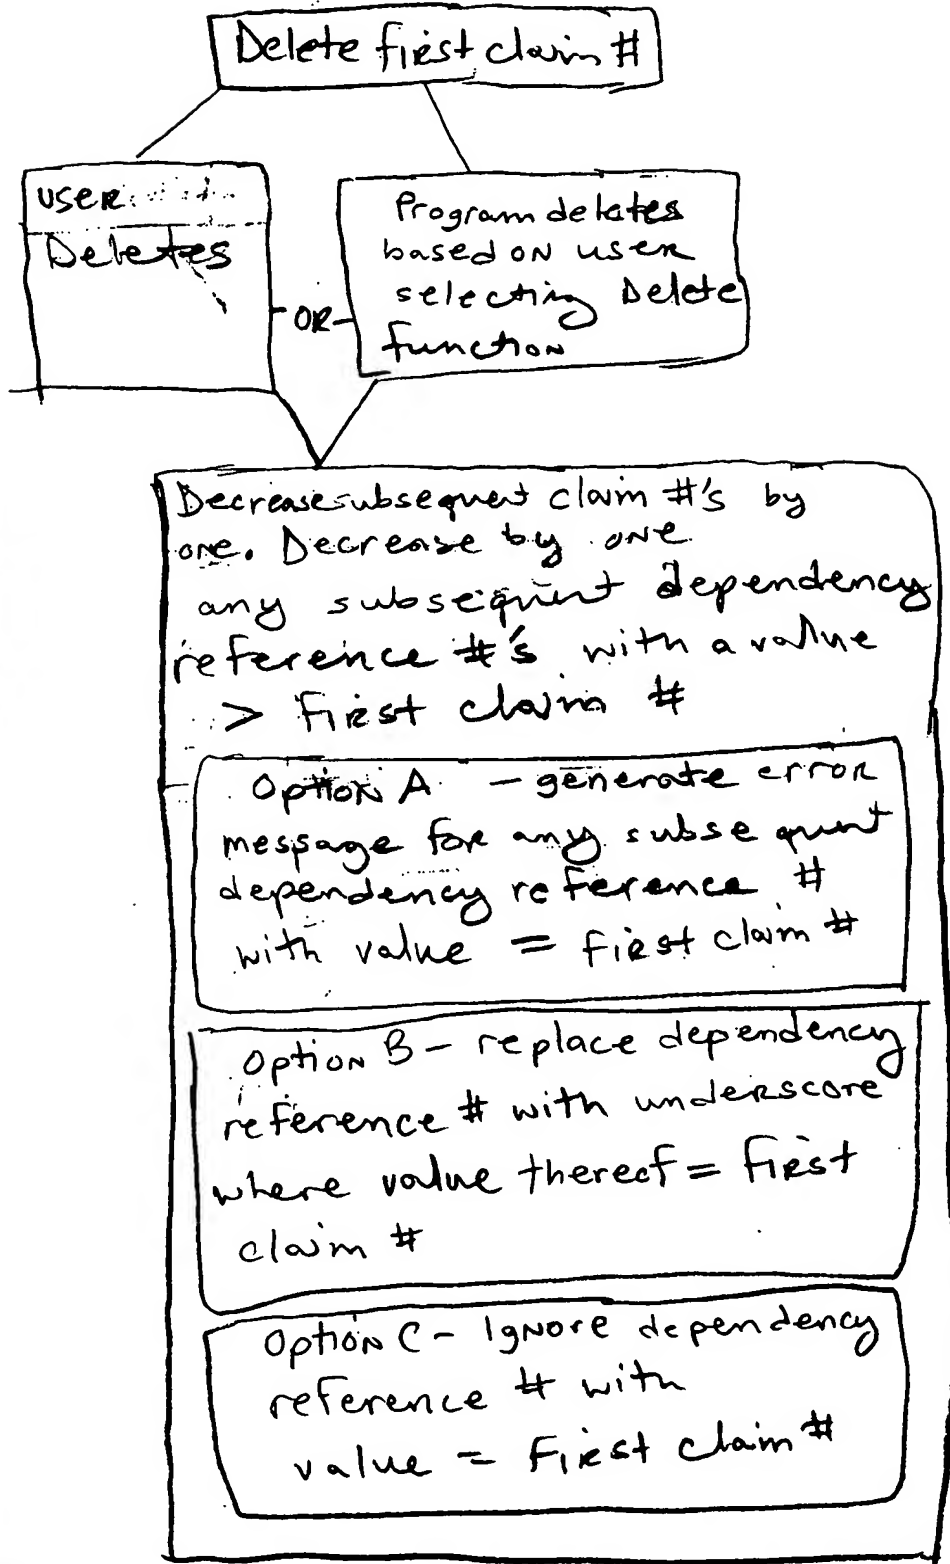 Delete first claim #
user
Deletes
OR
Program deletes
based on user
selecting Delete
function
Decrease subsequent claim #'s by
one. Decrease by one
any subsequent dependency
reference #'s with a value
> First claim #
Option A - generate error
message for any subsequent
dependency reference #
with value = first claim #
Option B - replace dependency
reference # with underscore
where value thereof = First
claim #
Option C - Ignore dependency
reference # with
value = First claim #